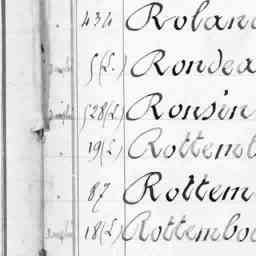 434 Roland
5(L.) Rondea
528(L) Ronsin
19(L) Rottemb
87 Rottem
18(L) Rottembou